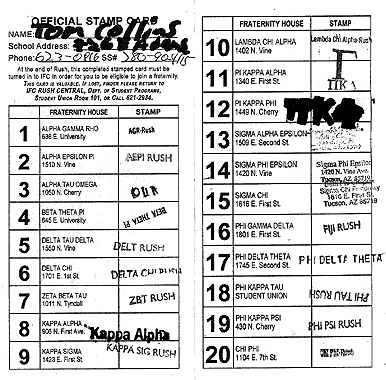 OFFICIAL STAMP CARD
NAME: Tom Collins
School Address:
Phone: 623-0816 SS#
At the end of Rush, this completed stamped card must be
turned in to IFC in order for you to be eligible to join a fraternity.
THIS CARD IS VALUABLE. IF LOST, PLEASE RETURN TO
IFC RUSH CENTRAL, DEPT. OF STUDENT PROGRAMS,
STUDENT UNION ROOM 101, OR CALL 621-2934.
FRATERNITY HOUSE STAMP
1 ALPHA GAMMA RHO AGR-Rush
638 E. University
2 ALPHA EPSILON PI AEPI RUSH
1510 N. Vine
3 ALPHA TAU OMEGA
1050 N. Cherry
4 BETA THETA PI BETA THETA PI
645 E. University
5 DELTA TAU DELTA DELT RUSH
1550 N. Vine
6 DELTA CHI DELTA CHI
1701 E. 1st St.
7 ZETA BETA TAU ZBT RUSH
1011 N. Tyndall
8 KAPPA ALPHA Kappa Alpha
906 N. First Ave.
9 KAPPA SIGMA KAPPA SIG RUSH
1423 E. First St.
FRATERNITY HOUSE STAMP
10 LAMBDA CHI ALPHA Lambda Chi Alpha-Rush
1402 N. Vine
11 PI KAPPA ALPHA ΠΚΑ
1340 E. First St.
12 PI KAPPA PHI ΠΚΦ
1449 N. Cherry
13 SIGMA ALPHA EPSILON
1509 E. Second St.
14 SIGMA PHI EPSILON Sigma Phi Epsilon
1420 N. Vine 1420 N. Vine Ave.
Tucson, AZ 85719
15 SIGMA CHI Sigma Chi Fraternity
1616 E. First St. 1616 E. First St.
Tucson, AZ 85719
16 PHI GAMMA DELTA FIJI RUSH
1801 E. First St.
17 PHI DELTA THETA PHI DELTA THETA
1745 E. Second St.
18 PHI KAPPA TAU PHI TAU RUSH
STUDENT UNION
19 PHI KAPPA PSI PHI PSI RUSH
430 N. Cherry
20 CHI PHI
1104 E. 7th St.